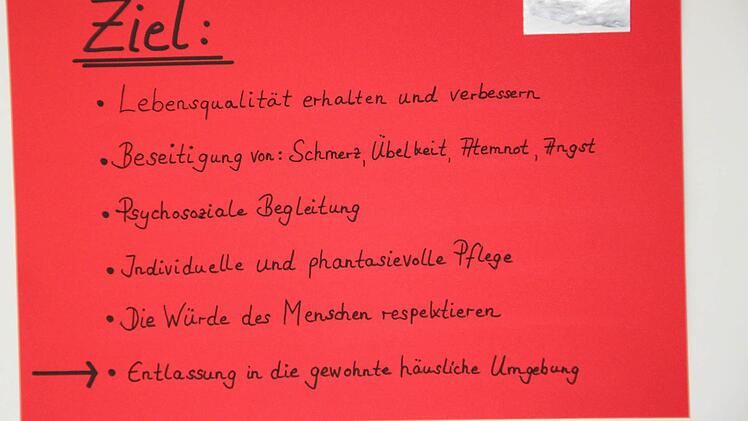 Ziel:
• Lebensqualität erhalten und verbessern
• Beseitigung von: Schmerz, Übelkeit, Atemnot, Angst
• Psychosoziale Begleitung
• Individuelle und phantasievolle Pflege
• Die Würde des Menschen respektieren
→ • Entlassung in die gewohnte häusliche Umgebung